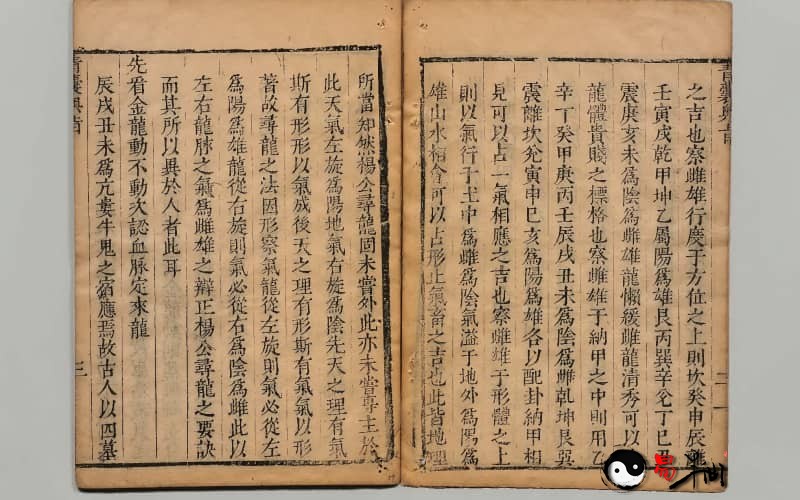 青囊奧旨
二
之吉也察雌雄行慶于方位之上則坎癸申辰離
壬寅戌乾甲坤乙屬陽爲雄艮丙巽辛兊丁巳丑
震庚亥未爲陰爲雌雄龍懶緩雌龍清秀可以
龍體貴賤之標格也察雌雄于納甲之中則用乙
辛丁癸甲庚丙壬辰戌丑未爲陰爲雌乾坤艮巽
震離坎兊寅申巳亥爲陽爲雄各以配卦納甲相
見可以占一氣相應之吉也察雌雄于形體之上
則以氣行于土中爲雌爲陰氣溢于地外爲陽爲
雄山水相會可以占形止氣畜之吉也此皆地理
所當知然楊公尋龍固未嘗外此亦未嘗專主於
此天氣左旋爲陽地氣右旋爲陰先天之理有氣
斯有形形以氣成後天之理有形斯有氣氣以形
著故尋龍之法因形察氣龍從左旋則氣必從左
爲陽爲雄龍從右旋則氣必從右爲陰爲雌此以
左右龍脉之氣爲雌雄之辯正楊公尋龍之要訣
而其所以異於人者此耳
先看金龍動不動次認血脉定來龍
辰戌丑未爲亢婁牛鬼之宿應焉故古人以四墓
青囊奧旨
三
易